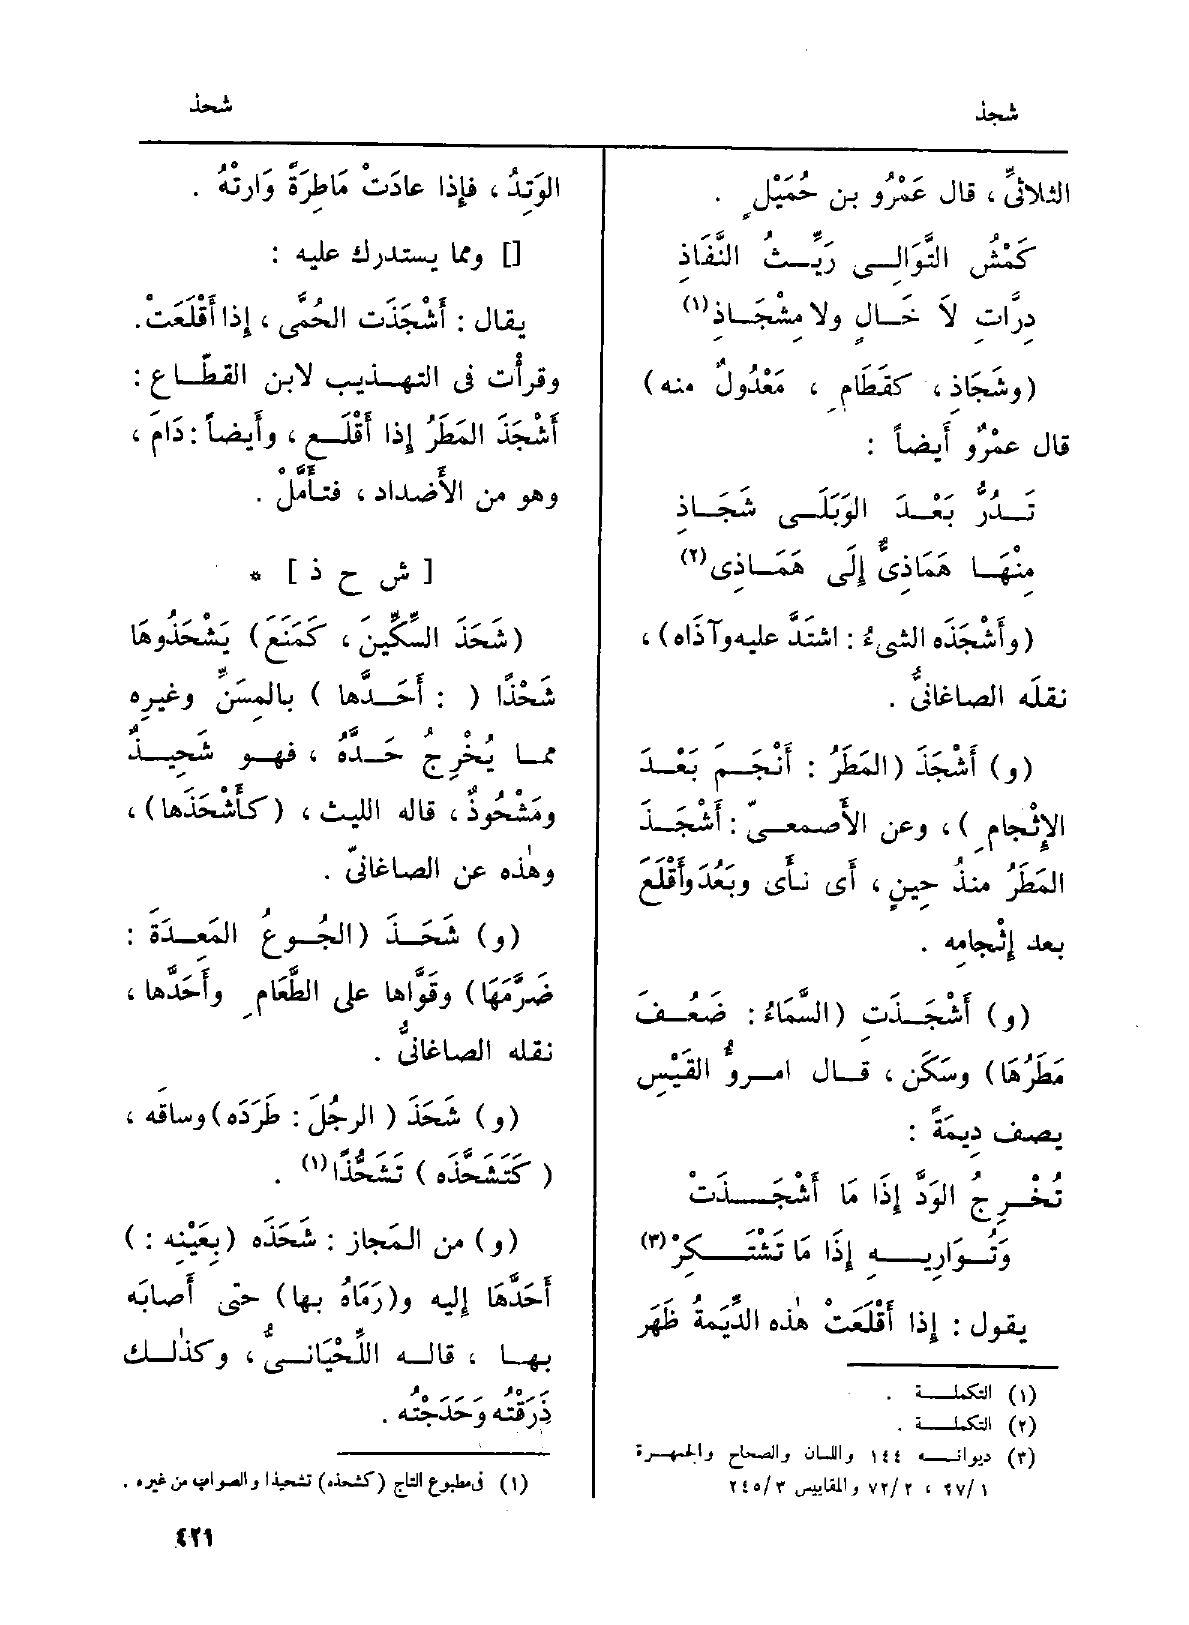 شجذ
شحذ
الثلاثيِّ ، قال عَمْرُو بن حُمَيْلٍ .
كَمْشُ التَّوَالِى رَيِّثُ النَّفَاذِ
دِرَّاتِ لاَ خَالٍ ولا مِشْجَاذِ (١)
(وشَجَاذِ ، كقَطَامِ ، مَعْدُولٌ منه)
قال عمْرٌو أَيضاً :
تَدُرُّ بَعْدَ الوَبَلَى شَجَاذِ
مِنْهَا هَمَاذِىٌّ إِلَى هَمَاذِى (٢)
(وأَشْجَذَه الشىءُ : اشتَدَّ عليه وآذَاه) ،
نقلَه الصاغانىُّ .
(و) أَشْجَذَ (المَطَرُ : أَنْجَمَ بَعْدَ
الإِثْجامِ ) ، وعن الأَصمعىّ : أَشْجَذَ
المَطَرُ منذُ حِينٍ ، أَى نأَى وبَعُدَ وأَقْلَعَ
بعد إِثْجامِه .
(و) أَشْجَذَتِ (السَّمَاءُ : ضَعُفَ
مَطَرُهَا) وسَكَن ، قال امرؤُ القَيْسِ
يصف دِيمَةً :
تُخْرِجُ الوَدَّ إِذَا مَا أَشْجَذَتْ
وَتُوَارِيهِ إِذَا مَا تَشْتَكِرْ (٣)
يقول : إِذا أَقْلَعَتْ هٰذه الدِّيَمةُ ظَهَر
(١) التكملة .
(٢) التكملة .
(٣) ديوانه ١٤٤ واللسان والصحاح والجمهرة
٩٧/١ ، ٧٢/٢ والمقاييس ٢٤٥/٣
الوَتِدُ ، فإِذا عادَتْ مَاطِرَةً وَارتْهُ .
[] ومما يستدرك عليه :
يقال : أَشْجَذَت الحُمَّى ، إِذا أَقْلَعَتْ .
وقرأْت فى التهذيب لابن القطَّاع :
أَشْجَذَ المَطَرُ إِذا أَقْلَع ، وأَيضاً : دَامَ ،
وهو من الأَضداد ، فتأَمَّلْ .
[ ش ح ذ ] *
(شَحَذَ السِّكِّينَ ، كَمَنَعَ) يَشْحَذُوهَا
شَحْذًا ( : أَحَدَّها ) بالمِسَنِّ وغيرِه
مما يُخْرِجُ حَدَّهُ ، فهو شَحِيذٌ
ومَشْحُوذٌ ، قاله الليث ، (كأَشْحَذَها) ،
وهٰذه عن الصاغانىّ .
(و) شَحَذَ (الجُوعُ المَعِدَةَ :
ضَرَّمَهَا) وقَوَّاها على الطَّعَامِ وأَحَدَّها ،
نقله الصاغانىُّ .
(و) شَحَذَ ( الرجُلَ : طَرَدَه) وساقَه ،
( كَتَشَحَّذَه ) تَشَحُّذًا (١) .
(و) من المَجاز : شَحَذَه (بِعَيْنِه : )
أَحَدَّهَا إِليه و(رَمَاهُ بها) حتى أَصابَه
بها ، قاله اللِّحْيَانىُّ ، وكذٰلك
ذَرَقْتُه وَحَدَجْتُه .
(١) فى مطبوع التاج (كشحذه) تشحيذا والصواب من غيره .
٤٢١